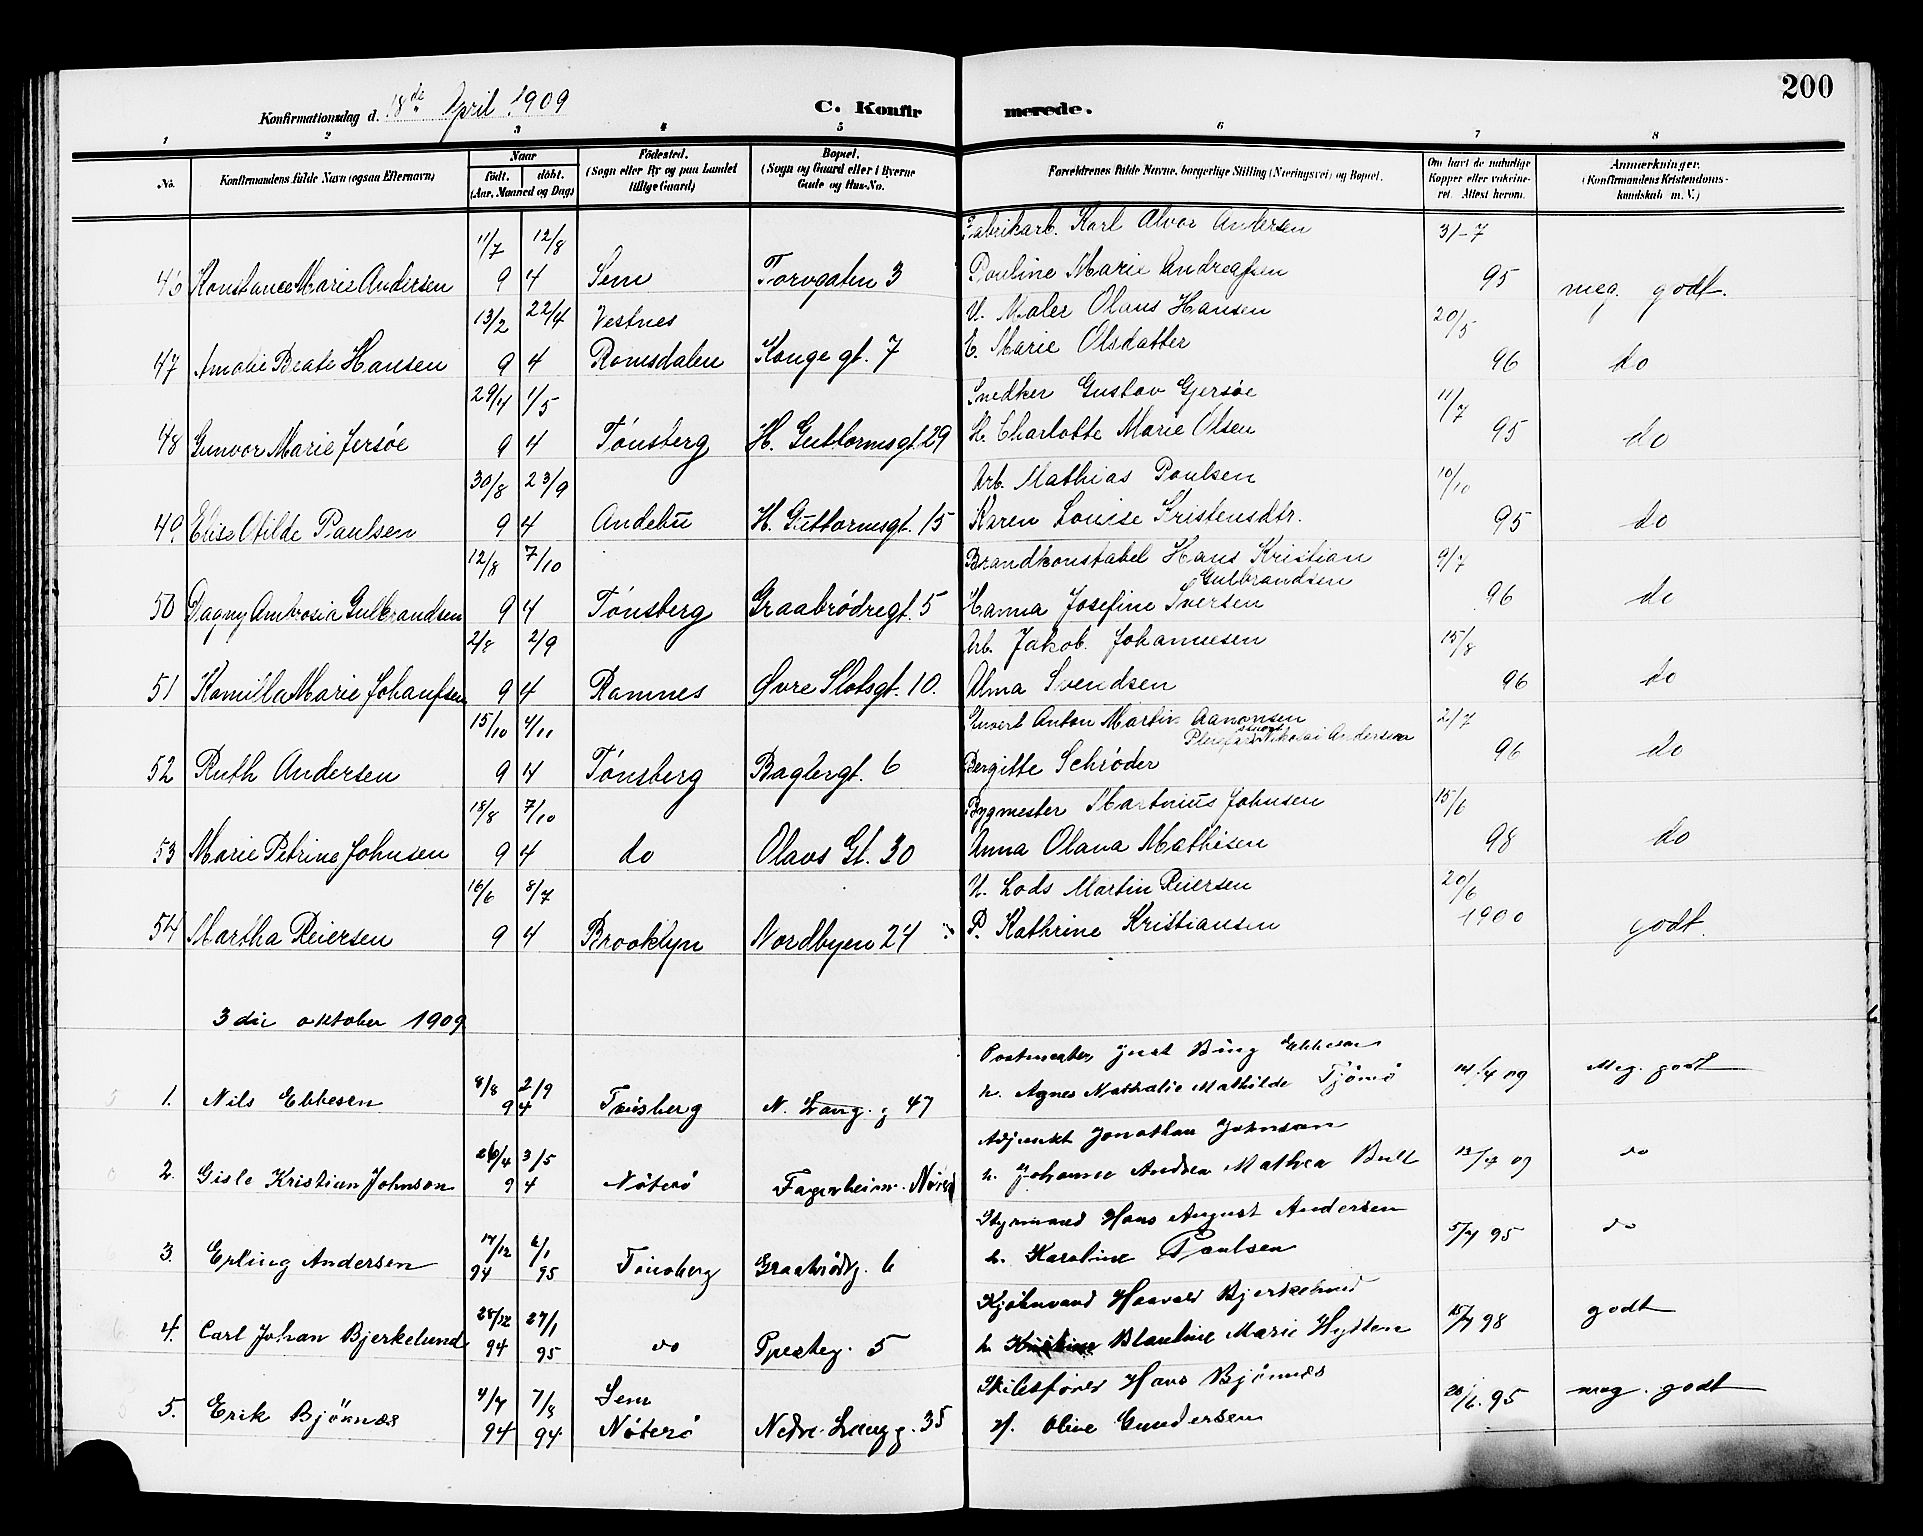 200
Konfirmationsdag d. 18de April 1909 C. Konfirmerede.
1 2 3 4 5 6 7 8
No. Konfirmandens fulde Navn (ogsaa Efternavn) Naar født. døbt. (Aar, Maaned og Dag) Fødested. (Sogn eller By og paa Landet tillige Gaard) Bopæl. (Sogn og Gaard eller i Byerne Gade og Hus-No. Forældrenes fulde Navne, borgerlige Stilling (Næringsvei) og Bopæl. Om havt de naturlige Kopper eller vakcineret. Attest herom. Anmerkninger. (Konfirmandens Kristendomskundskab m. V.)
11/7 12/8 Fabrikarb. Karl Alvor Andersen 31-7
46 Konstance Marie Andersen 9 4 Sem Torvgaten 3 Pauline Marie Andreassen 95 meg. godt.
13/2 22/4 Vestnes U. Maler Olaus Hansen 20/5
47 Amalie Beate Hansen 9 4 Romsdalen Konge gt. 7 E. Marie Olsdatter 96 do
29/4 1/5 Snedker Gustav Gjersøe 11/7
48 Gunvor Marie Jersøe 9 4 Tønsberg H. Guttormsgt. 29 H. Charlotte Marie Olsen 95 do
30/8 23/9 Arb. Mathias Paulsen 10/10
49 Elise Otilde Paulsen 9 4 Andebu H. Guttormsgt. 15 Karen Louise Kristensdtr. 95 do
12/8 7/10 Brandkonstabel Hans Kristian Gulbrandsen 9/7
50 Dagny Ambrosia Gulbrandsen 9 4 Tønsberg Graabrødregt. 5 Hanna Josefine Iversen 96 do
2/8 2/9 Arb. Jakob Johannesen 15/8
51 Kamilla Marie Johansen 9 4 Ramnes Øvre Slotsgt. 10. Alma Svendsen 96 do
15/10 4/11 Anton Martin Aanonsen 2/7
Nikolai Andersen
52 Ruth Andersen 9 4 Tønsberg Baglergt. 6 Bergitte Schrøder 96 do
18/8 7/10 Bygmester Martnius Johnsen 15/6
53 Marie Petrine Johnsen 9 4 do Olavs Gt. 30 Anna Olava Mathisen 98 do
16/6 8/7 U. Lods Martin Reiersen 20/6
54 Martha Reiersen 9 4 Brooklyn Nordbyen 24 P. Kathrine Kristiansen 1900 godt.
3die oktober 1909
Postmester Just Bing Ebbesen
1. Nils Ebbesen 8/8 2/9 94 Tønsberg N. Langg. 47 h. Agnes Nathalie Mathilde Tjømø 14/4 09 Meg. godt
Adjunkt Jonathan Johnson
2. Gisle Kristian Johnson 26/4 3/5 9 4 Nøterø Fagerheim. Nøterø h. Johanne Andrea Mathea Bull 13/4 09 do
Styrmand Hans August Andersen
3. Erling Andersen 17/12 94 6/1 95 Tønsberg Graabrødg. 6 h. Karoline Paulsen 5/7 95 do
Kjøbmand Haavald Bjerkelund
4. Carl Johan Bjerkelund 28/12 94 27/1 95 do Presteg. 5 h. Blantine Marie Hytten 15/7 98 godt
Skibsfører Hans Bjønnes
5. Erik Bjönnes 4/7 94 7/8 94 Sem Nøterø Nedre Langg. 35 H. Oline Gundersen 20/6. 95 meg. godt